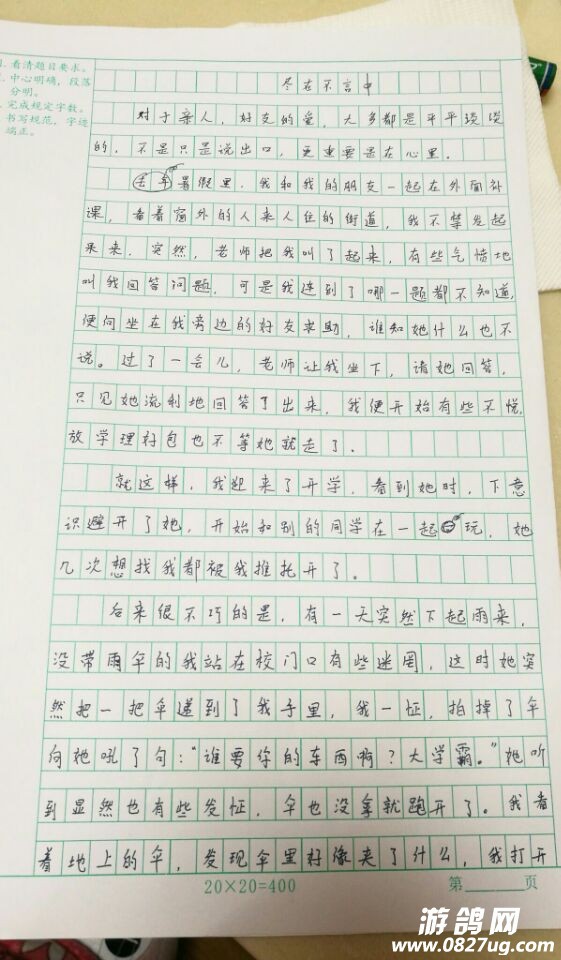 1. 看清题目要求。
中心明确，段落
分明。
完成规定字数。
书写规范，字迹
端正。
尽在不言中
对于亲人，好友的爱，大多都是平平淡淡
的，不是只是说出口，更重要是在心里。
去年暑假里，我和我的朋友一起在外面补
课，看着窗外的人来人往的街道，我不禁发起
呆来，突然，老师把我叫了起来，有些气愤地
叫我回答问题，可是我连到了哪一题都不知道，
便向坐在我旁边的好友求助，谁知她什么也不
说。过了一会儿，老师让我坐下，请她回答，
只见她流利地回答了出来，我便开始有些不悦，
放学理好包也不等她就走了。
就这样，我迎来了开学，看到她时，下意
识避开了她，开始和别的同学在一起玩，她
几次想找我都被我推托开了。
后来很不巧的是，有一天突然下起雨来，
没带雨伞的我站在校门口有些迷罔，这时她突
然把一把伞递到了我手里，我一怔，拍掉了伞
向她吼了句：“谁要你的东西啊？大学霸。”她听
到显然也有些发怔，伞也没拿就跑开了。我看
着地上的伞，发现伞里好像夹了什么，我打开
20×20=400
第 页
游鸽网
www.0827ug.com